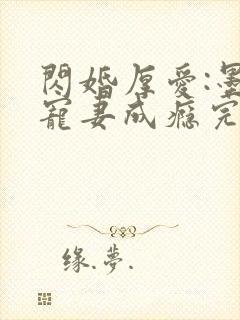 閃婚厚愛:墨
寵妻成癮完
缘.夢.